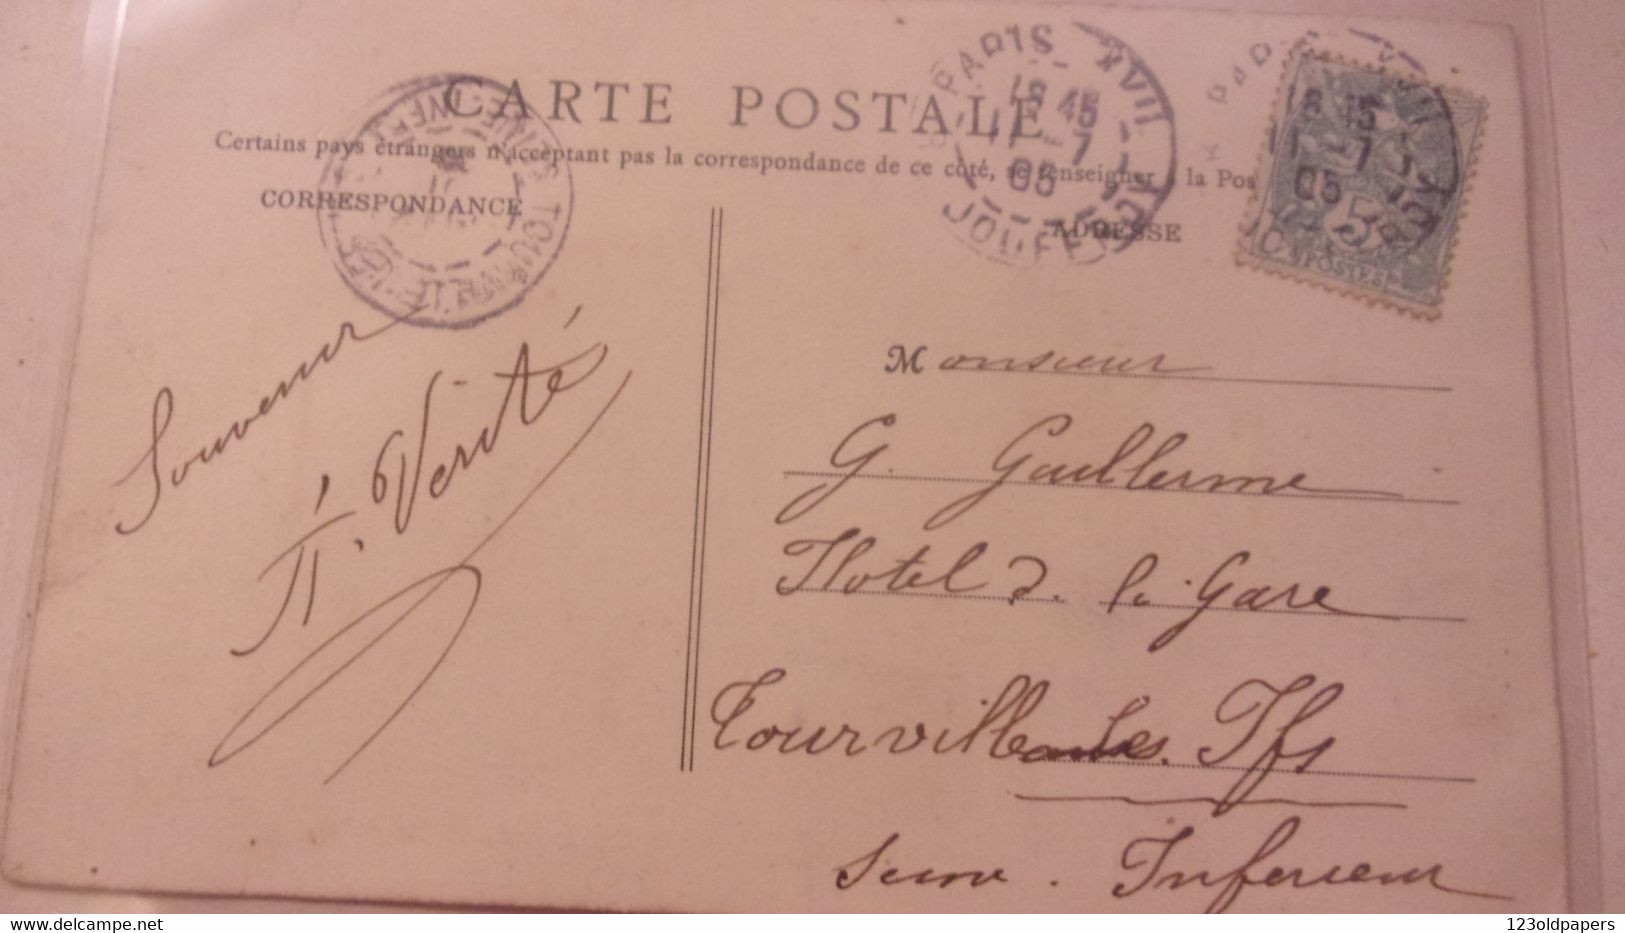 CARTE POSTALE
Certains pays étrangers n'acceptent pas la correspondance de ce côté, se renseigner à la Pos
CORRESPONDANCE
ADRESSE
PARIS XVII
18 45
11 - 7
05
JOUFFROY
PARIS XVII
18 45
11 - 7
05
JOUFFROY
5
POSTES
Souvenir
Verité
Monsieur
G. Guillerme
Hotel d. la Gare
Tourville les Ifs
Seine Inférieur
123oldpapers